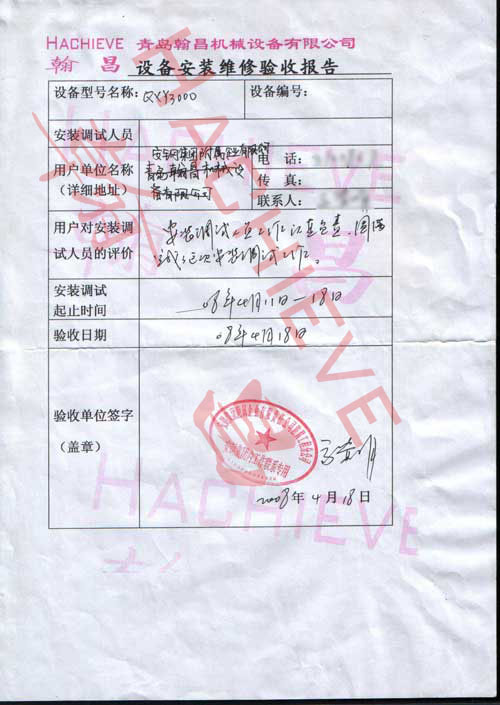 HACHIEVE 青岛翰昌机械设备有限公司
翰 昌 设备安装维修验收报告
设备型号名称: QXY3000 设备编号:
安装调试人员
用户单位名称
(详细地址)
安钢集团附属企业有限公司
青岛翰昌机械设
备有限公司
电 话:
传 真:
联系人:
用户对安装调
试人员的评价
安装调试人员工作认真负责、圆满
完成这次安装调试工作。
安装调试
起止时间
08年4月11日—18日
验收日期 08年4月18日
验收单位签字
(盖章)
2008年4月18日
HACHIEVE
翰昌
HACHIEVE